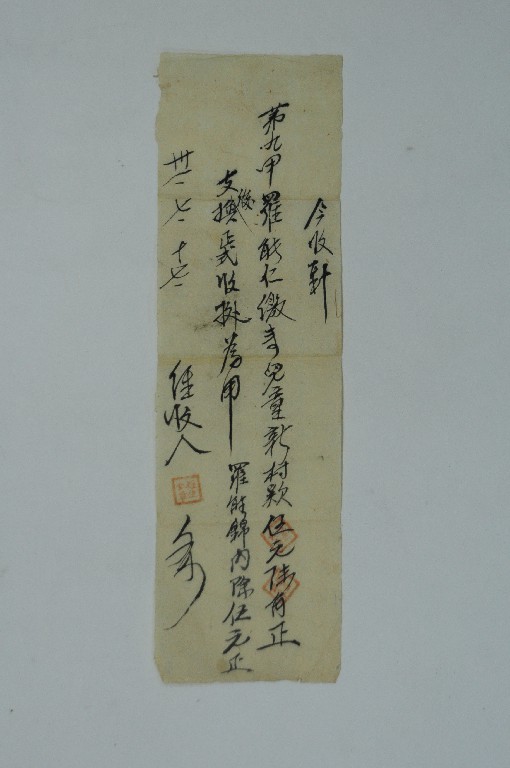 今收到
第九甲羅能仁繳來兒童新村款伍元陸角正
後支換正式收據為用
羅能錦內除伍元正
卅一 七 十七
經收人